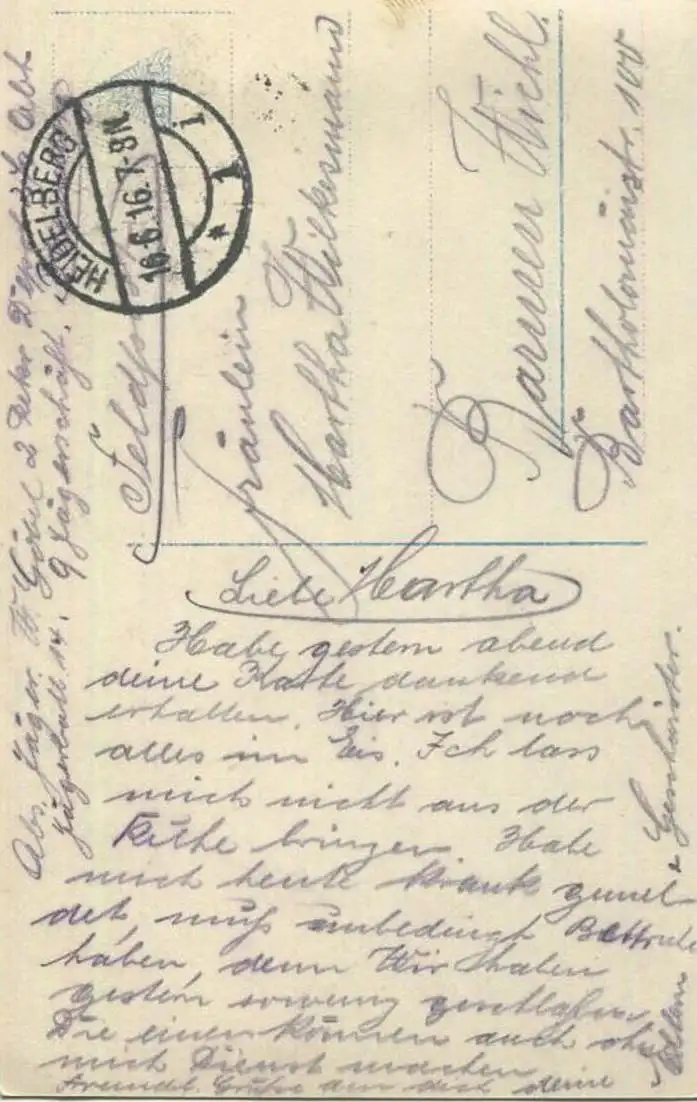 HEIDELBERG
16.6.16. 7-8N.
1
Fräulein
Martha Wilkesmann
Barmen Wichl.
Bartholomäustr. 100
Abs. Jäger W. Göbel 2
Jägerbatl 14.
Liebe Martha
Habe gestern abend
deine Karte dankend
erhalten. Hier ist noch
alles im Eis. Ich lass
mich nicht aus der
Ruhe bringen. Habe
mich heute krank gemel-
det, muß unbedingt Bettruhe
haben, denn Wir haben
gestern so wenig geschlafen.
Die einen können auch ohne
mich Dienst machen
Freundl. Grüße an dich deine
Eltern u Geschwister.